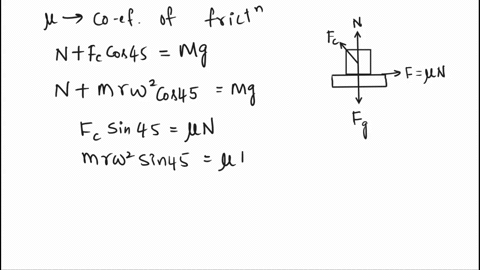 μ → co-ef. of frictⁿ
N + Fc Cos45 = Mg
N + mrω² Cos45 = Mg
Fc Sin 45 = μN
mrω² Sin45 = μ l
N
Fc
F = μN
Fg